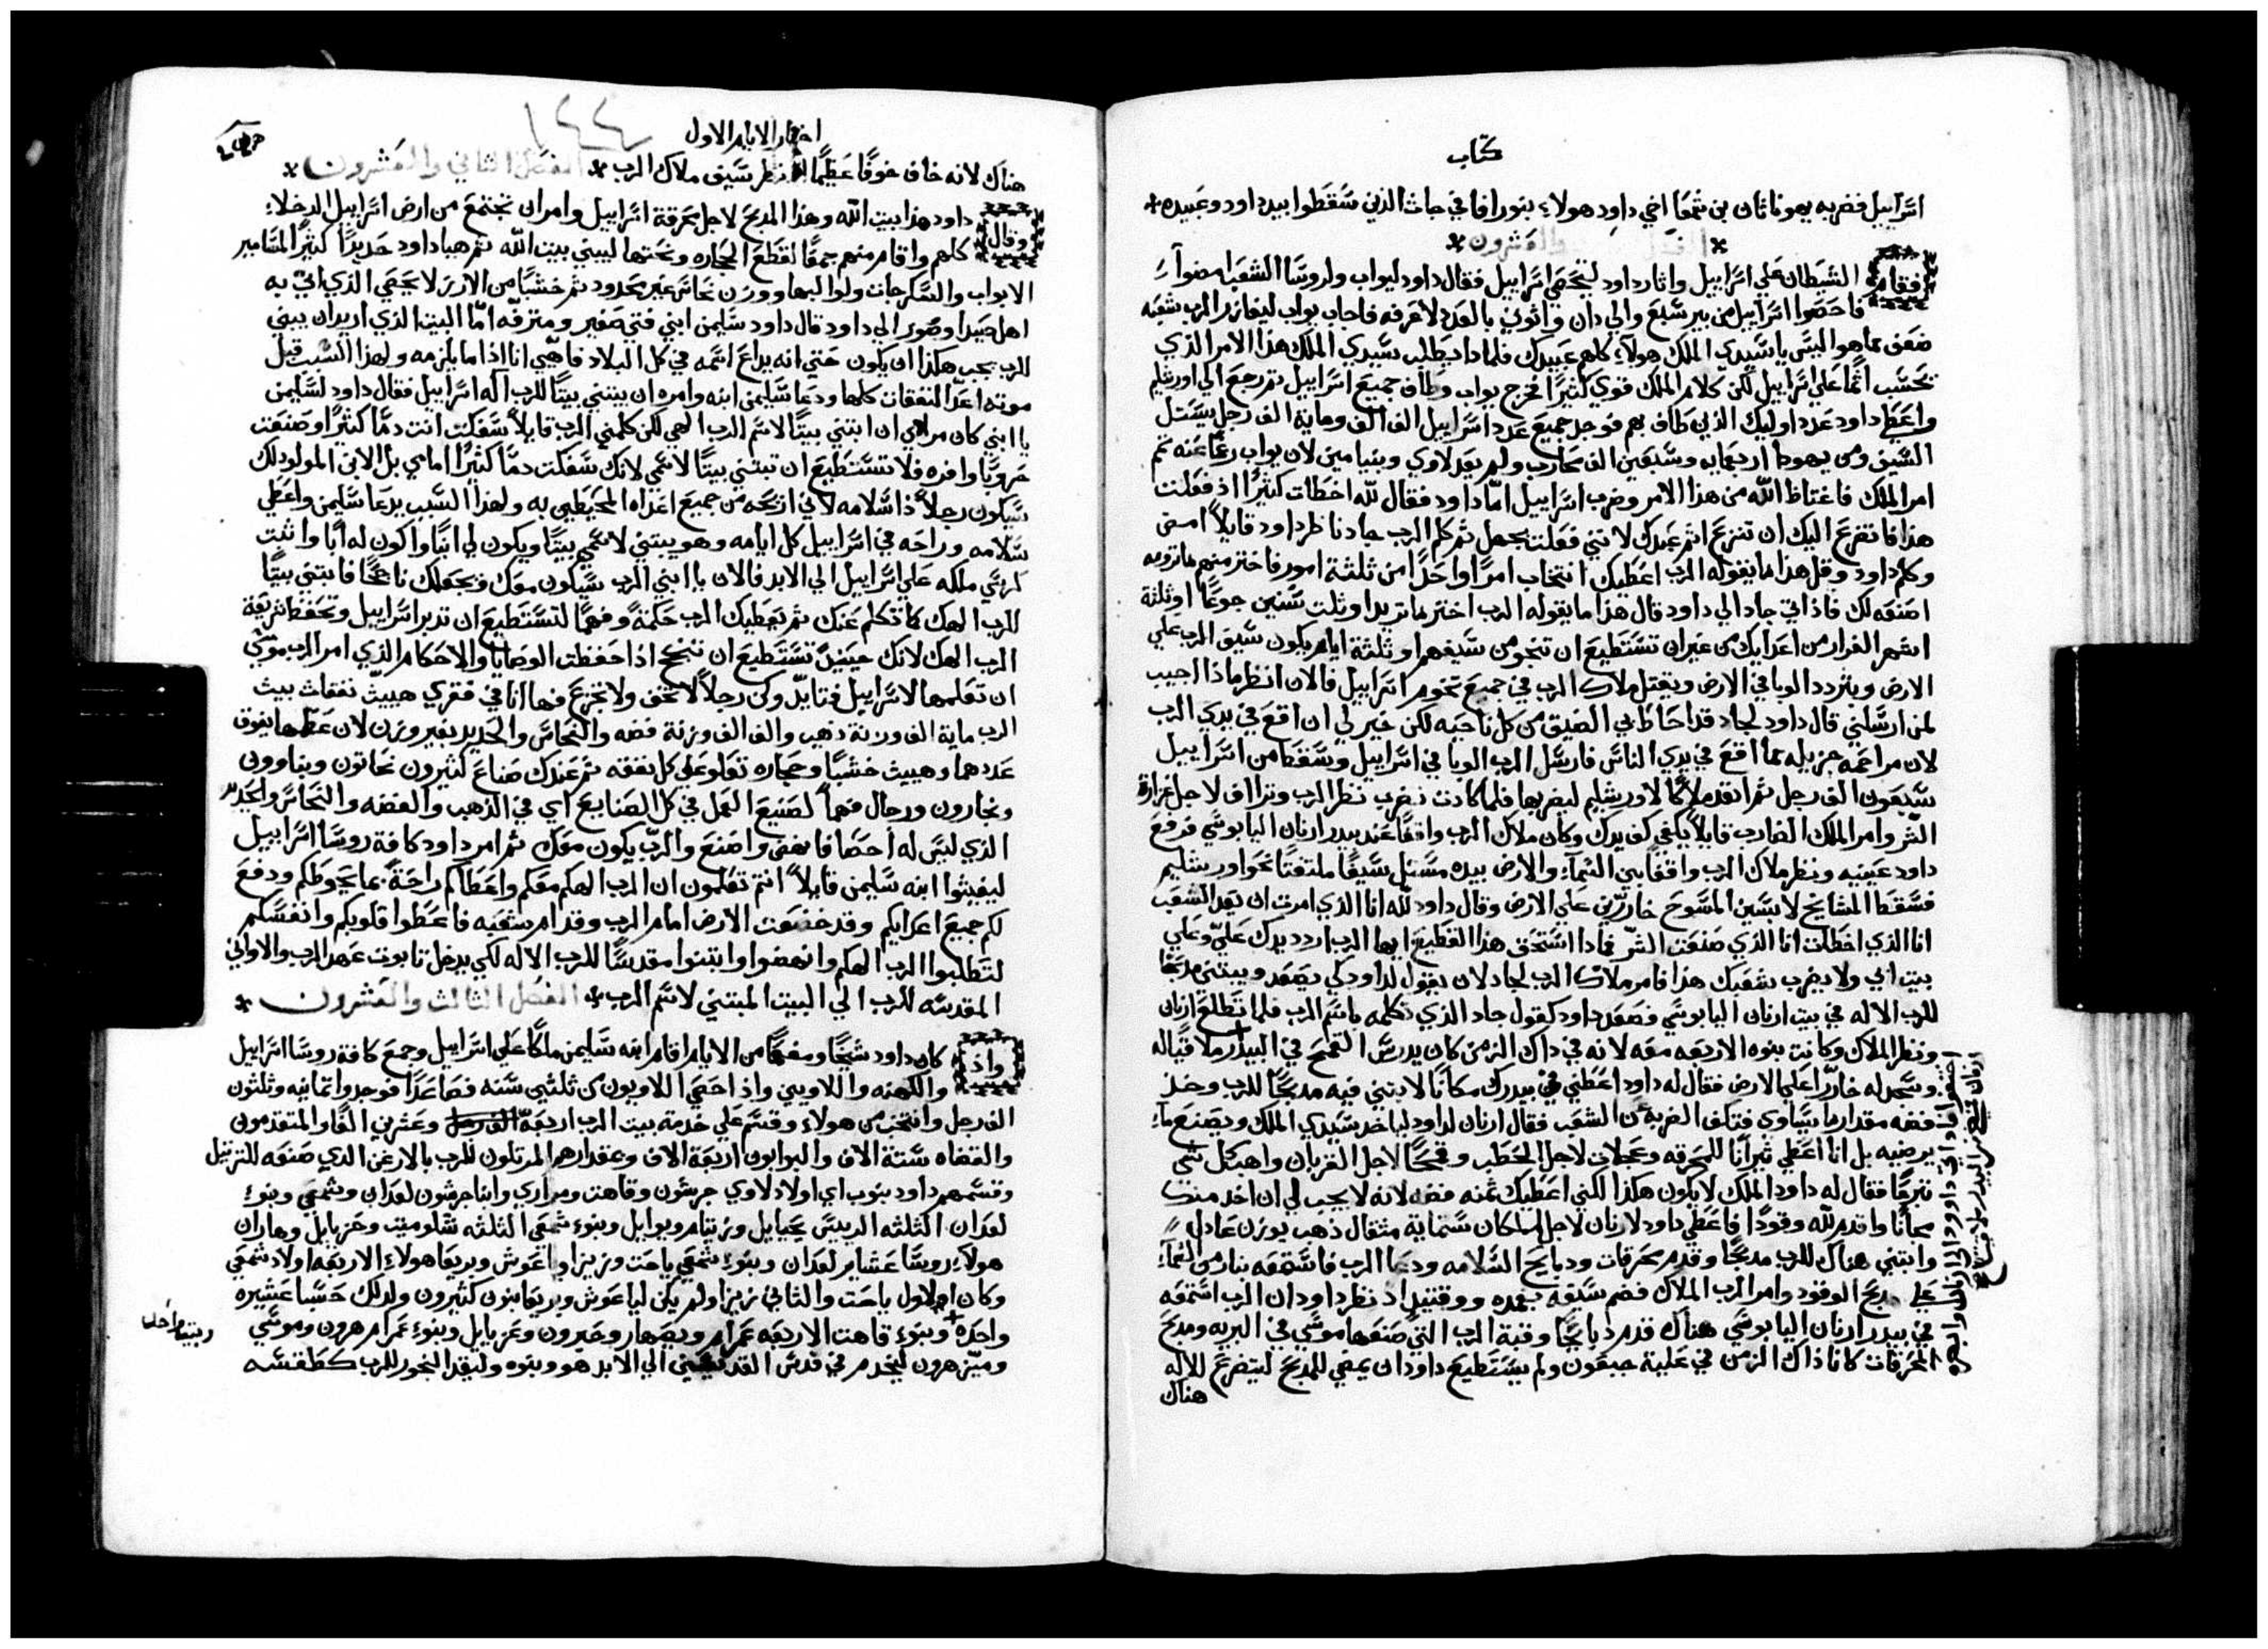 كتاب
اسراييل فضربه يهوناثان بن شمعا اخي داود هولاء بنورافا في جاث الذين سقطوا بيد داود وعبيده
والعشرون
فقام الشيطان على اسراييل واثار داود ليحصي اسراييل فقال داود ليواب ولروسا الشعب امضوا
فاحصوا اسراييل من بير سبع والي دان واتوني بالعدد لاعرفه فاجاب يواب ليفازر الرب شعبه
ضعف مما هو اليس يا سيدي الملك هولاء كلهم عبيدك فلماذا يطلب سيدي الملك هذا الامر الذي
تحسب اثما علي اسراييل لكن كلام الملك قوي كثيرا فخرج يواب وطاف جميع اسراييل ثم رجع الي اورشليم
واعطا داود عدد اوليك الذين طاف بهم فوجد جميع عدد اسراييل الف الف وماية الف رجل يستل
السيف ومن يهودا اربعمايه وسبعين الف محارب ولم يعد لاوي وبنيامين لان يواب رغما عنه تم
امر الملك فاغتاظ الله من هذا الامر وضرب اسراييل اما داود فقال لله اخطات كثيرا اذ فعلت
هذا فاتضرع اليك ان تنزع اثم عبدك لانني فعلت بجهل ثم كلم الرب جاد ناظر داود قايلا امض
وكلم داود وقل هذا ما يقوله الرب اعطيك انتخاب امرا واحدا من ثلثة امور فاختر منهم ما تريد
اصنعه لك فاذ اتي جاد الي داود قال هذا ما يقوله الرب اختر ما تريد او ثلت سنين جوعا او ثلثة
اشهر الفرار من اعدايك من غير ان تستطيع ان تنجو من سيفهم او ثلثة ايام يكون سيف الرب علي
الارض ويتردد الوبا في الارض ويقتل ملاك الرب في جميع تخوم اسراييل فالان انظر ماذا اجيب
لمن ارسلني قال داود لجاد قد احاط بي الضيق من كل ناحيه لكن خير لي ان اقع في يدي الرب
لان مراحمه جزيله مما اقع في يدي الناس فارسل الرب الوبا في اسراييل وسقط من اسراييل
سبعون الف رجل ثم انفد ملاكا لاورشليم ليضربها فلما كادت تضرب نظر الرب وتراف لاجل غزارة
الشر وامر الملاك الضارب قايلا يكفي كف يدك وكان ملاك الرب واقفا عند بيدر ارنان اليابوسي فرفع
داود عينيه ونظر ملاك الرب واقفا بين السماء والارض بيده مستل سيفا ملتفتا نحو اورشليم
فسقط المشايخ لابسين المسوح خارين علي الارض وقال داود لله انا الذي امرت ان يعد الشعب
انا الذي اخطات انا الذي صنعت الشر فماذا استحق هذا القطيع ايها الرب اردد يدك علي وعلي
بيت ابي ولا يضرب شعبك هذا فامر ملاك الرب لجاد لان يقول لداود كي يصعد ويبتني مدبحا
للرب الاله في بيت ارنان اليابوسي فصعد داود كقول جاد الذي تكلمه باسم الرب فلما تطلع ارنان
ونظر الملاك وكانت بنوه الاربعه معه لانه في ذاك الزمن كان يدرس القمح في البيدر
وسجد له خارا علي الارض فقال له داود اعطني في بيدرك مكانا لابتني فيه مدبحا للرب وخذ
فضه مقدار ما يساوي فتكف الضربه من الشعب فقال ارنان لداود لياخد سيدي الملك ويصنع ما
يرضيه بل انا اعطي ثيرانا للمحرقه وعجلات لاجل الحطب وقمحا لاجل القربان واهب كل شي
تبرعا فقال له داود الملك لا يكون هكذا لكني اعطيك ثمنه فضه لانه لا يجب لي ان اخد منك
مجانا واقدم لله وقودا فاعطي داود لارنان لاجل المكان ستماية مثقال ذهب بوزن عادل
وابتني هناك للرب مدبحا وقدم محرقات ودبايح السلامه ودعا الرب فاستمعه بنار من السماء
علي مدبح الوقود وامر الرب الملاك فضم سيفه بغمده ووقتيد اذ نظر داود ان الرب استمعه
في بيدر ارنان اليابوسي هناك قدم دبايحا وقبة الرب التي صنعها موسي في البريه ومدبح
المحرقات كانا ذاك الزمن في علية جبعون ولم يستطيع داود ان يمضي للمدبح ليتضرع للاله
هناك
اخبار الايام الاول
١٤٤
هناك لانه خاف خوفا عظيما اذ نظر سيف ملاك الرب الفصل الثاني والعشرون
وقال داود هذا بيت الله وهذا المدبح لاجل محرقة اسراييل وامر ان تجتمع من ارض اسراييل الدخلاء
كلهم واقام منهم جمعا لقطع الحجاره ونحتها ليبني بيت الله ثم هيا داود حديدا كثيرا لمسامير
الابواب والسكرجات ولوالبها ووزن نحاس غير محدود ثم خشبا من الارز لا يحصي الذي اتي به
اهل صيدا وصور الي داود قال داود سليمن ابني فتي صغير ومترفه اما البيت الذي اريد ان يبني
للرب يجب هكذا ان يكون حتي انه يداع اسمه في كل البلاد فاهيي انا اذا ما يلزمه ولهذا السبب قبل
موته اعد النفقات كلها ودعا سليمن ابنه وامره ان يبتني بيتا للرب اله اسراييل فقال داود لسليمن
يا ابني كان مرادي ان ابتني بيتا لاسم الرب الهي لكن كلمني الرب قايلا سفكت انت دما كثيرا وصنعت
حروبا وافره فلا تستطيع ان تبتني بيتا لاسمي لانك سفكت دما كثيرا امامي بل الابن المولود لك
سيكون رجلا ذا سلامه لاني ازيحه من جميع اعداه المحيطين به ولهذا السبب يدعا سليمن واعطي
سلامه وراحه في اسراييل كل ايامه وهو يبتني لاسمي بيتا ويكون لي ابنا واكون له ابا واثبت
كرسي ملكه علي اسراييل الي الابد فالان يا ابني الرب سيكون معك ويجعلك ناجحا فابتني بيتا
للرب الهك كما تكلم عنك ثم يعطيك الرب حكمة وفهما لتستطيع ان تدبر اسراييل وتحفظ شريعة
الرب الهك لانك حينيذ تستطيع ان تنجح اذا حفظت الوصايا والاحكام الذي امر الرب موسي
ان تعلمها لاسراييل فتايد وكن رجلا لا تخف ولا تجزع فها انا في فقري هييت نفقات بيت
الرب ماية الف وزنة ذهب والف الف وزنة فضه والنحاس والحديد بغير وزن لان عظمها يفوق
عددهما وهييت خشبا وحجاره تعلو علي كل نفقه ثم عندك صناع كثيرون نحاتون وبناوون
ونجارون ورجال فهما لصنيع العمل في كل الصنايع اي في الذهب والفضه والنحاس والحديد
الذي ليس له احصا فانهض واصنع والرب يكون معك ثم امر داود كافة روسا اسراييل
ليغيثوا ابنه سليمن قايلا انتم تعلمون ان الرب الهكم معكم واعطاكم راحة بما يحوطكم ودفع
لكم جميع اعدايكم وقد خضعت الارض امام الرب وقدام شعبه فاعطوا قلوبكم وانفسكم
لتطلبوا الرب الهكم وانهضوا وابتنوا مقدسا للرب الاله لكي يدخل تابوت عهد الرب والاواني
المقدسه للرب الي البيت المبتني لاسم الرب الفصل الثالث والعشرون
واذ كان داود شيخا ومفعما من الايام اقام ابنه سليمن ملكا علي اسراييل وجمع كافة روسا اسراييل
والكهنه واللاويين واذ احصي اللاويون من ثلثين سنه فصاعدا فوجدوا ثمانيه وثلثون
الف رجل وانتخب من هولاء وقسم علي خدمة بيت الرب اربعة وعشرين الفا والمتقدمون
والقضاه ستة الاف والبوابون اربعة الاف وبمقدارهم المرتلون للرب بالارغن الذي صنعه للترتيل
وقسمهم داود بنوب اي اولاد لاوي جرشون وقاهت ومراري وابنا جرشون لعدان وشمعي وبنوء
لعدان الثلثه الرييس يحيايل وزيتام ويوايل وبنوء شمعي الثلثه شلوميت وحزيايل وهاران
هولاء روسا عشاير لعدان وبنوء شمعي ياحت وزيزا وياعوش وبريعا هولاء الاربعه اولاد شمعي
وكان الاول ياحت والثاني زيزا ولم يكن لياعوش وبريعا بنون كثيرون ولدلك حسبا عشيره
واحده وبنوء قاهت الاربعه عمرام ويصهار وحبرون وعزيايل وبنوء عمرام هرون وموسي
وميز هرون ليخدم في قدس القديسين الي الابد هو وبنوه وليقد البخور للرب كطقسه